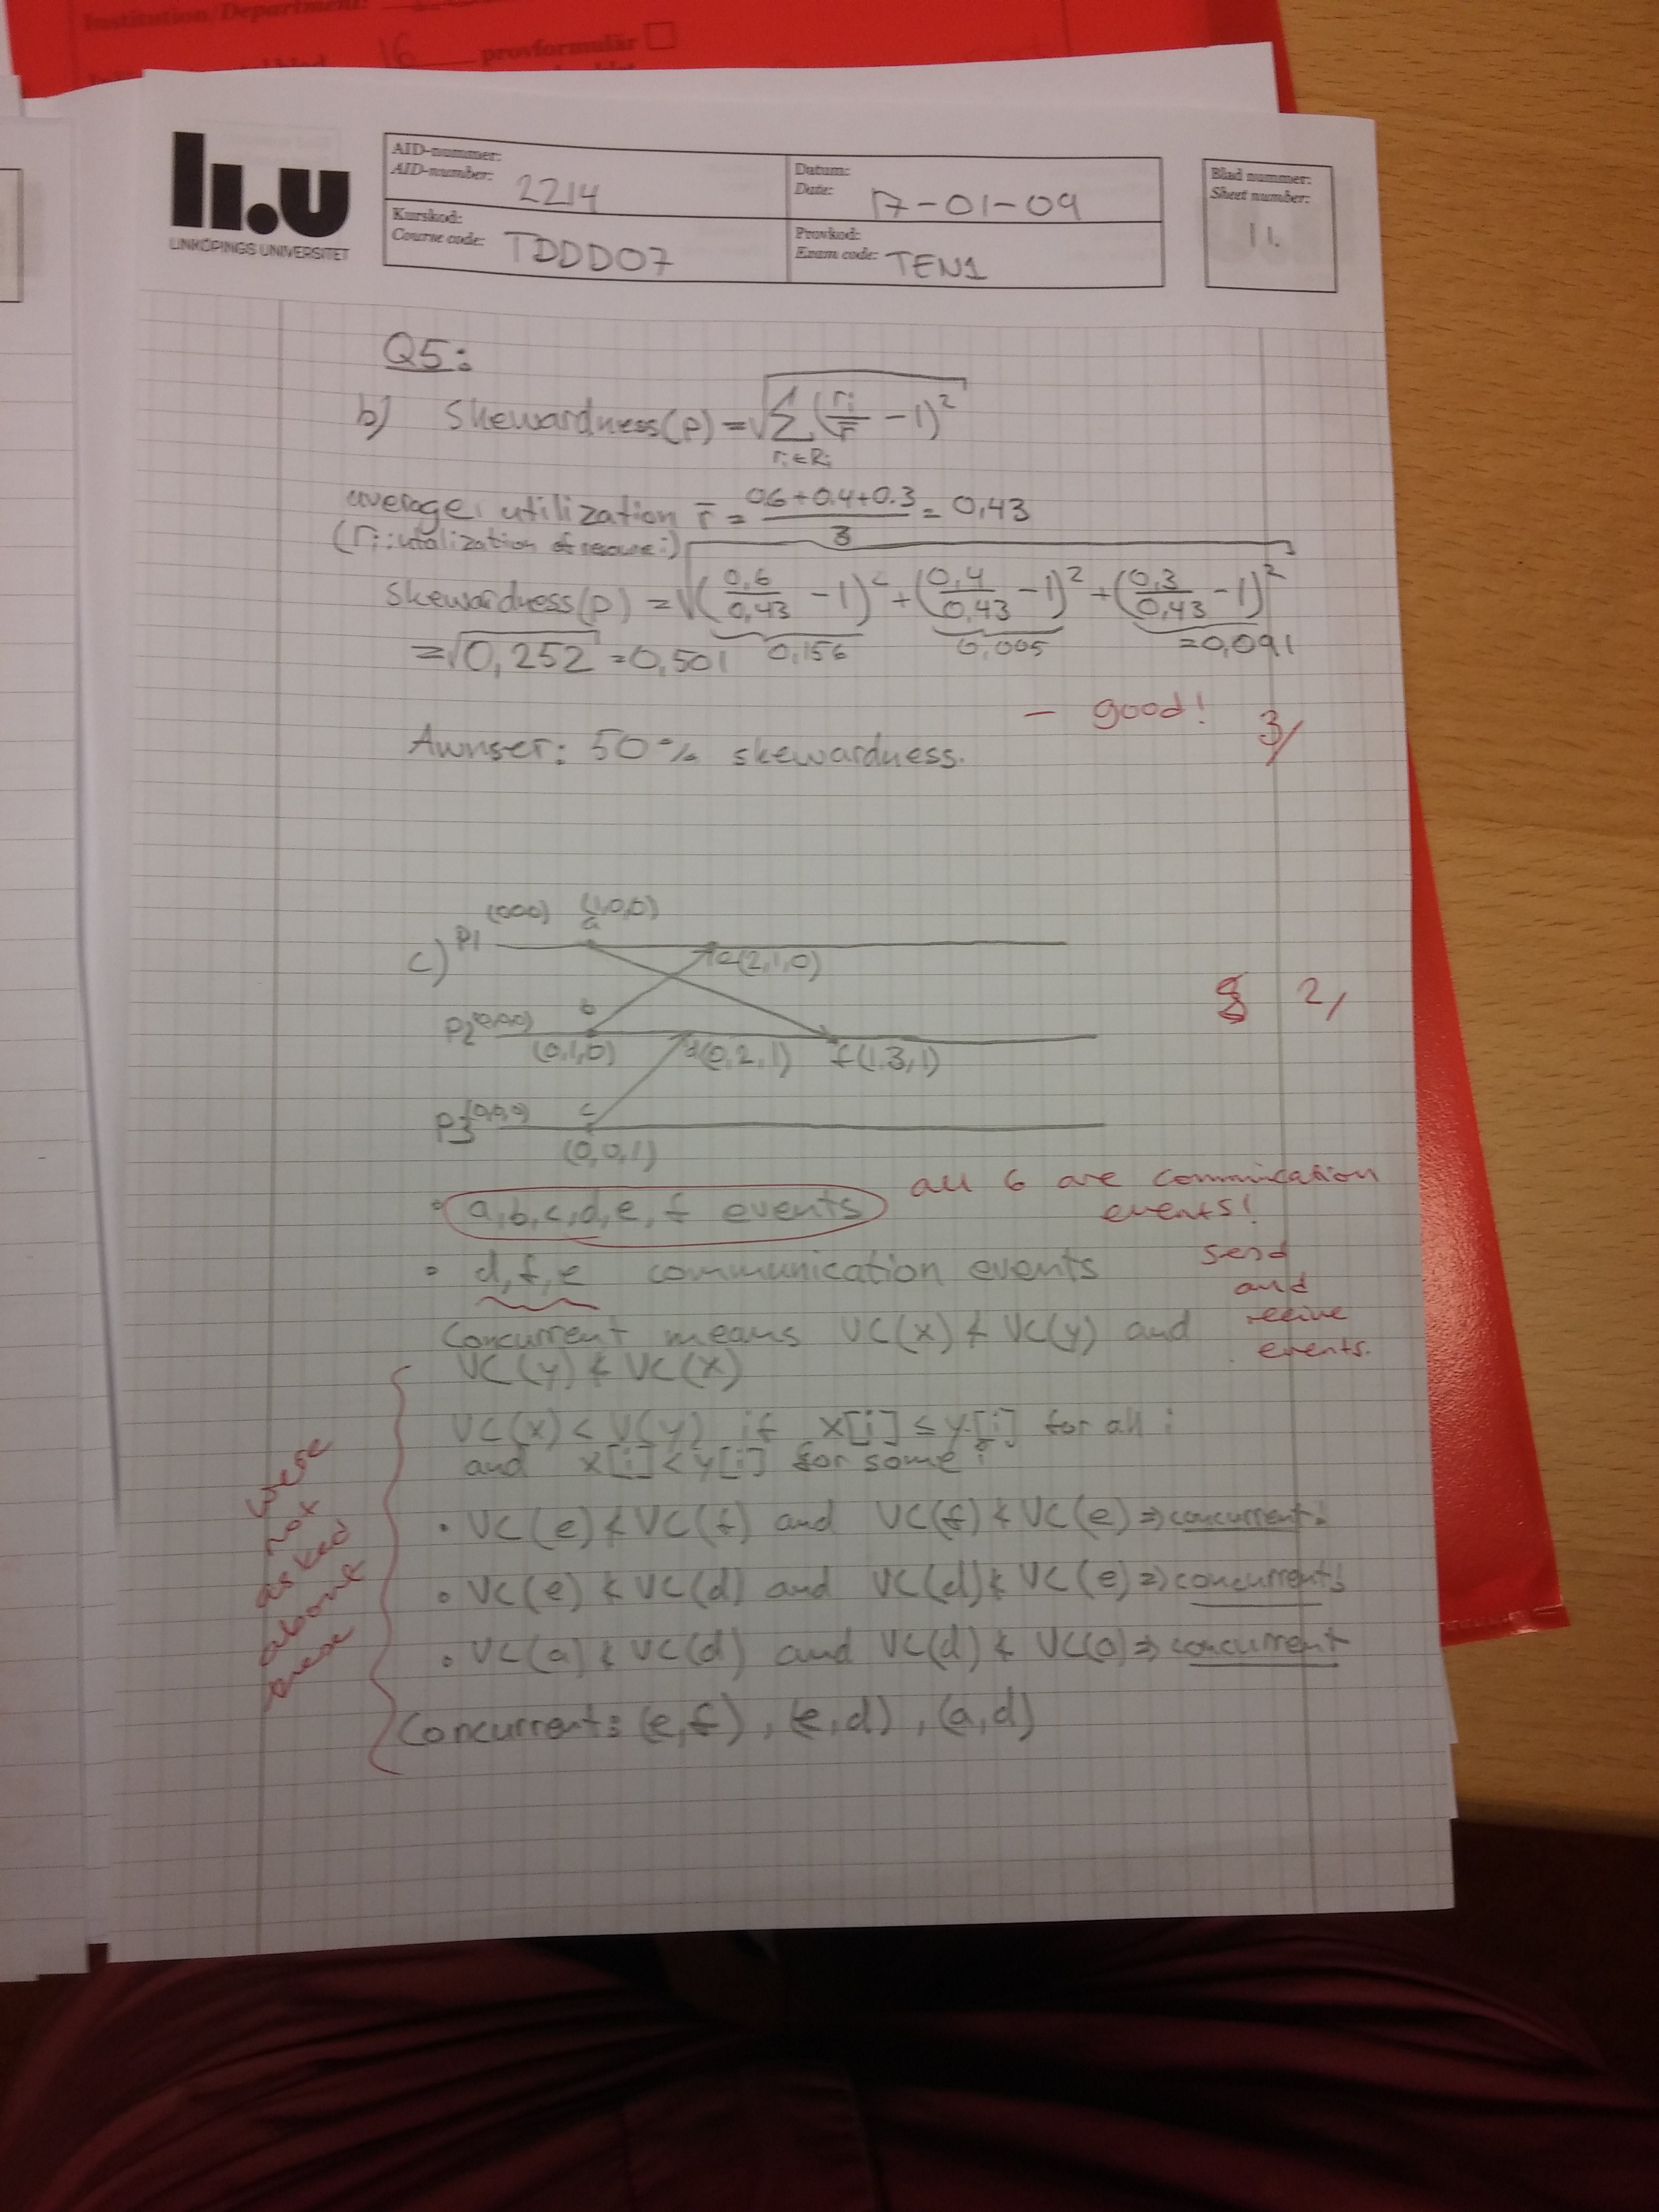 Institution/Department:
16 provformulär
li.u
LINKÖPINGS UNIVERSITET
AID-nummer:
AID-number: 2214
Datum:
Date: 17-01-09
Kurskod:
Course code: TDDD07
Provkod:
Exam code: TEN1
Blad nummer:
Sheet number:
11.
Q5:
b) Skewardness(p) = √∑ (ri/r̄ - 1)²
ri∈Ri
average utilization r̄ = 0.6+0.4+0.3/3 = 0,43
(ri: utalization of resource i)
Skewardness(p) = √(0,6/0,43 - 1)² + (0,4/0,43 - 1)² + (0,3/0,43 - 1)²
= √0,252 = 0,501 0,156 0,005 = 0,091
- good! 3/
Awnser: 50% skewardness.
(000) (1,0,0)
a
c) P1
e(2,1,0)
b
2/
P2 (0,0,0)
(0,1,0) d(0,2,1) f(1,3,1)
c
P3 (0,0,0)
(0,0,1)
all 6 are commnication
events!
send
and
reeive
events.
◦ a,b,c,d,e,f events
◦ d,f,e communication events
Concurrent means VC(x) ≮ VC(y) and
VC(y) ≮ VC(x)
VC(x) < V(y) if x[i] ≤ y[i] for all i
and x[i] < y[i] for some i
• VC(e) ≮ VC(f) and VC(f) ≮ VC(e) => concurrent!
◦ VC(e) ≮ VC(d) and VC(d) ≮ VC(e) => concurrent!
◦ VC(a) ≮ VC(d) and VC(d) ≮ VC(a) => concurrent
Concurrent: (e,f), (e,d), (a,d)
asked